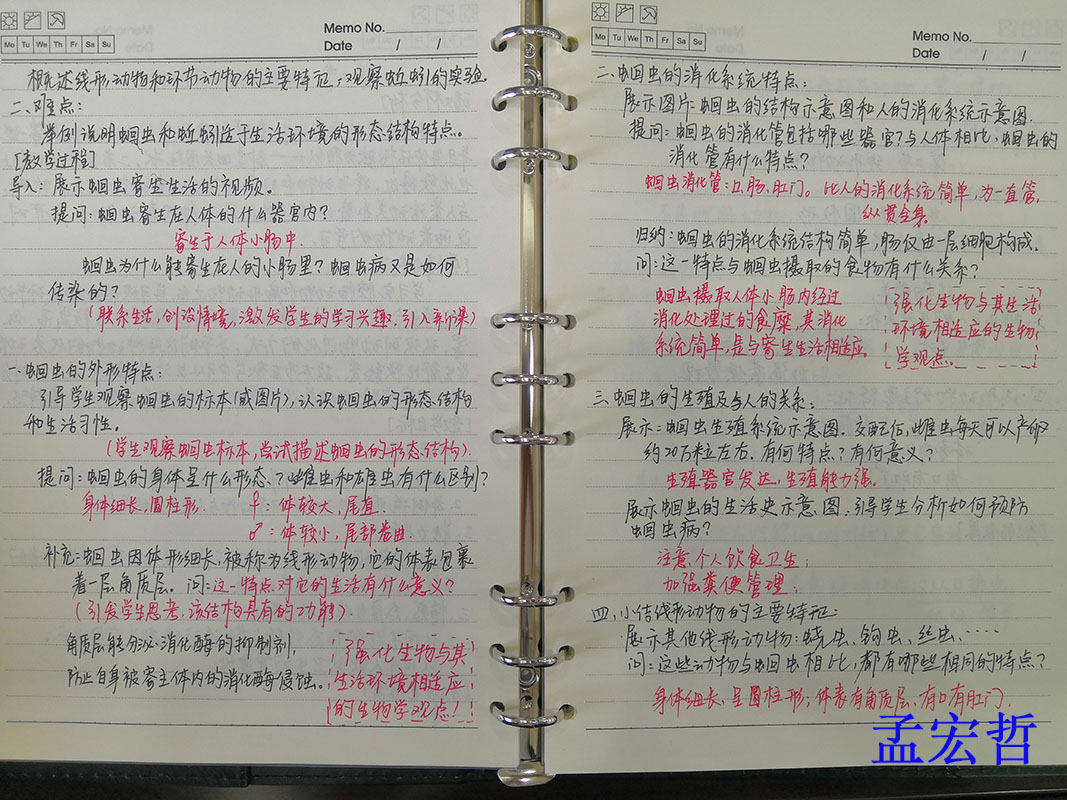 Memo No.
Mo Tu We Th Fr Sa Su
Date / /
概述线形动物和环节动物的主要特征；观察蚯蚓的实验.
二、难点：
举例说明蛔虫和蚯蚓适于生活环境的形态结构特点。
[教学过程]
导入：展示蛔虫寄生生活的视频。
提问：蛔虫寄生在人体的什么器官内？
寄生于人体小肠中.
蛔虫为什么能寄生在人的小肠里？蛔虫病又是如何
传染的？
(联系生活,创设情境,激发学生的学习兴趣.引入新课)
一、蛔虫的外形特点：
引导学生观察蛔虫的标本(或图片),认识蛔虫的形态结构
和生活习性。
(学生观察蛔虫标本,尝试描述蛔虫的形态结构).
提问：蛔虫的身体呈什么形态？雌虫和雄虫有什么区别？
身体细长,圆柱形. ♀：体较大,尾直.
♂：体较小,尾部卷曲.
补充：蛔虫因体形细长,被称为线形动物,它的体表包裹
着一层角质层。问：这一特点对它的生活有什么意义？
(引发学生思考.该结构具有的功能)
角质层能分泌消化酶的抑制剂,
防止自身被寄主体内的消化酶侵蚀。
强化生物与其
生活环境相适应
的生物学观点！
Memo No.
Mo Tu We Th Fr Sa Su
Date / /
二、蛔虫的消化系统特点：
展示图片：蛔虫的结构示意图和人的消化系统示意图.
提问：蛔虫的消化管包括哪些器官？与人体相比,蛔虫的
消化管有什么特点？
蛔虫消化管：口、肠、肛门。比人的消化系统简单,为一直管,
纵贯全身。
归纳：蛔虫的消化系统结构简单,肠仅由一层细胞构成.
问：这一特点与蛔虫摄取的食物有什么关系？
蛔虫摄取人体小肠内经过
消化处理过的食糜,其消化
系统简单,是与寄生生活相适应.
强化生物与其生活
环境相适应的生物
学观点.
三、蛔虫的生殖及与人的关系：
展示：蛔虫生殖系统示意图.交配后,雌虫每天可以产卵
约20万粒左右.有何特点？有何意义？
生殖器官发达,生殖能力强。
展示蛔虫的生活史示意图.引导学生分析如何预防
蛔虫病？
注意个人饮食卫生；
加强粪便管理；
四、小结线形动物的主要特征：
展示其他线形动物：蛲虫、钩虫、丝虫、····
问：这些动物与蛔虫相比,都有哪些相同的特点？
身体细长,呈圆柱形；体表有角质层、有口有肛门.
孟宏哲